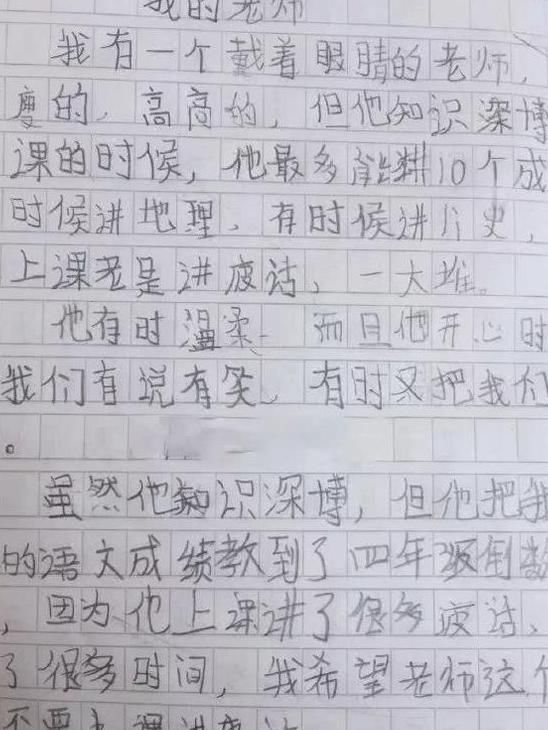 我的老师
我有一个戴着眼睛的老师，
瘦的，高高的，但他知识深博
课的时候，他最多能讲10个成
时候讲地理，有时候讲历史，
上课老是讲疲话，一大堆。
他有时温柔，而且他开心时
我们有说有笑，有时又把我们
。
虽然他知识深博，但他把我
的语文成绩教到了四年级倒数
，因为他上课讲了很多疲话，
了很多时间，我希望老师这个
不要上课讲疲话